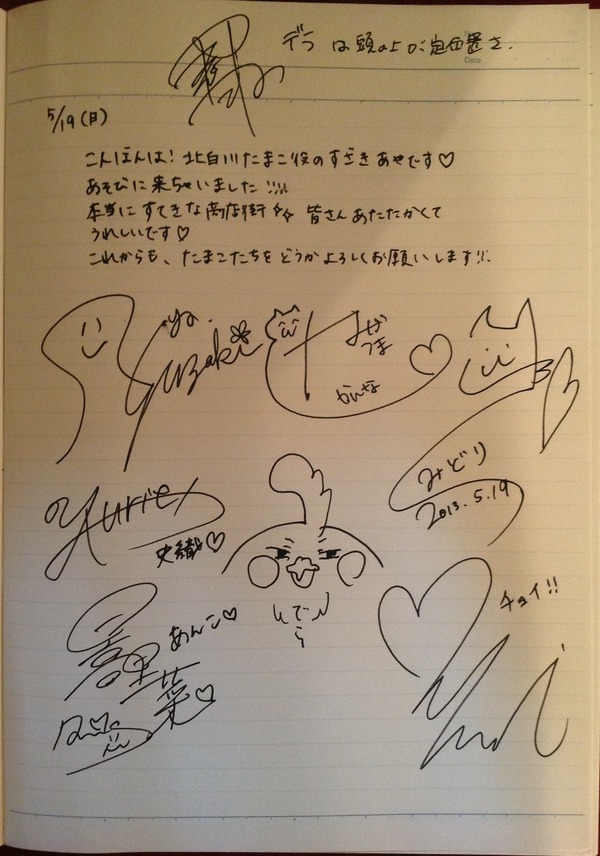 デラは頭の上が定位置さ.
Date
5/19(日)
こんばんは!北白川たまこ役のすざきあやです♡
あそびに来ちゃいました!!!!
本当にすてきな商店街☆☆ 皆さんあたたかくて
うれしいです♡
これからも、たまこたちをどうかよろしくお願いします!!
Aya.
Suzaki
かなづま
かんな
みどり
2013.5.19
Yurie
史織♡
でら
あんこ♡
チョイ!!
Yuki